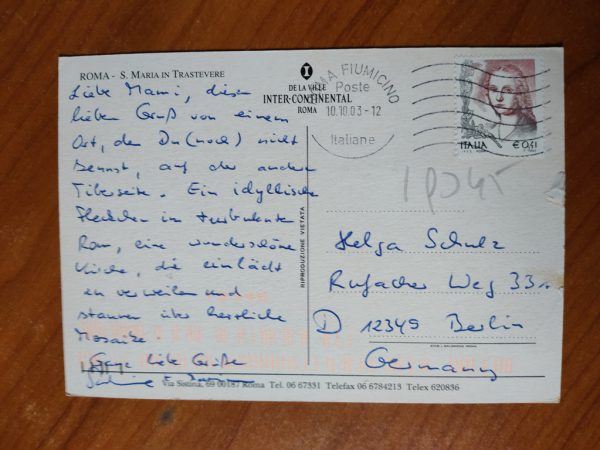 ROMA - S. MARIA IN TRASTEVERE
Liebe Mami, diesen
lieben Gruß von einem
Ort, den Du (noch) nicht
kennst, auf der anderen
Tiberseite. Ein idyllisches
Fleckchen im turbulenten
Rom, eine wunderschöne
Kirche, die einlädt
zu verweilen und
staunen über herrliche
Mosaike.
Ganz liebe Grüße
DE LA VILLE
INTER-CONTINENTAL
ROMA
RIPRODUZIONE VIETATA
ROMA FIUMICINO
Poste
10.10.03 - 12
Italiane
ITALIA
€ 0,41
Helga Schulz
Rufacher Weg 33
D 12349 Berlin
Germany
Via Sistina, 69 00187 Roma Tel. 06 67331 Telefax 06 6784213 Telex 620836